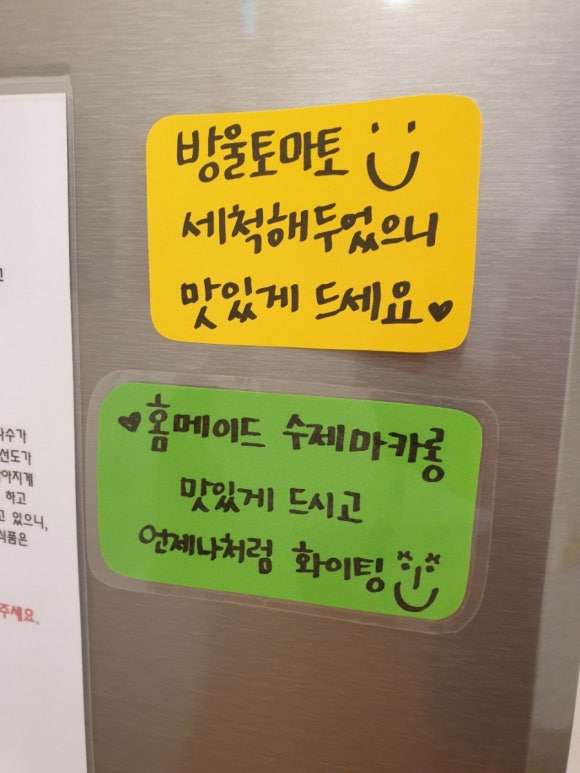 방울토마토
세척해두었으니
맛있게 드세요♥
♥홈메이드 수제마카롱
맛있게 드시고
언제나처럼 화이팅
하고
고 있으니,
식품은
주세요.